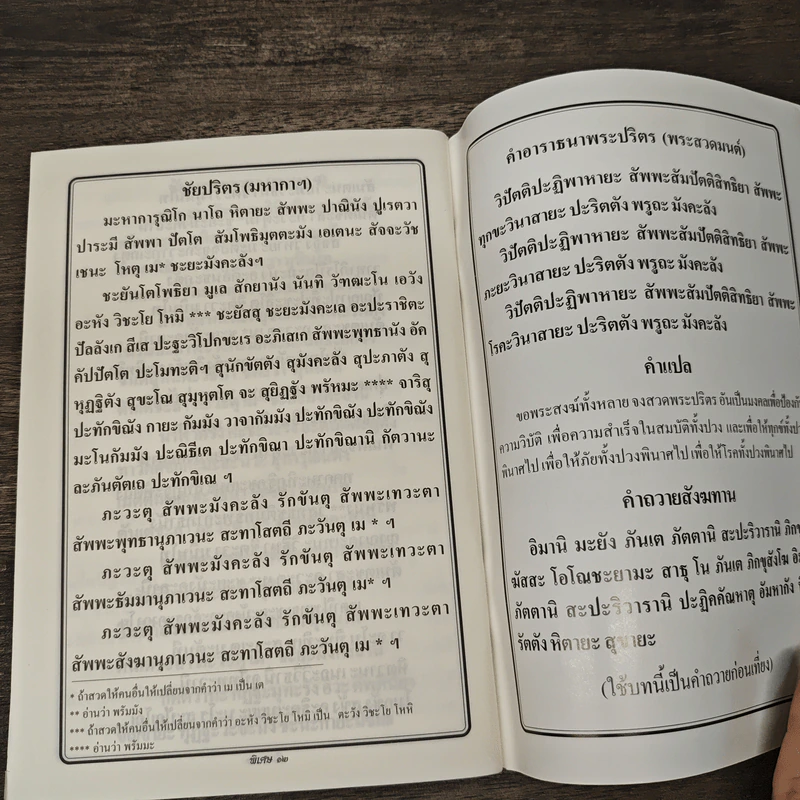 ชัยปริตร (มหากาฯ)
มะหาการุณิโก นาโถ หิตายะ สัพพะ ปาณินัง ปูเรตวา
ปาระมี สัพพา ปัตโต สัมโพธิมุตตะมัง เอเตนะ สัจจะวัช
เชนะ โหตุ เม* ชะยะมังคะลังฯ
ชะยันโตโพธิยา มูเล สักยานัง นันทิ วัฑฒะโน เอวัง
อะหัง วิชะโย โหมิ *** ชะยัสสุ ชะยะมังคะเล อะปะราชิตะ
ปัลลังเก สีเส ปะฐะวิโปกขะเร อะภิเสเก สัพพะพุทธานัง อัค
คัปปัตโต ปะโมทะติฯ สุนักขัตตัง สุมังคะลัง สุปะภาตัง สุ
หุฏฐิตัง สุขะโณ สุมุหุตโต จะ สุยิฏฐัง พรัหมะ **** จาริสุ
ปะทักขิณัง กายะ กัมมัง วาจากัมมัง ปะทักขิณัง ปะทักขิณัง
มะโนกัมมัง ปะณิธีเต ปะทักขิณา ปะทักขิณานิ กัตวานะ
ละภันตัตเถ ปะทักขิเณ ฯ
ภะวะตุ สัพพะมังคะลัง รักขันตุ สัพพะเทวะตา
สัพพะพุทธานุภาเวนะ สะทาโสตถี ภะวันตุ เม * ฯ
ภะวะตุ สัพพะมังคะลัง รักขันตุ สัพพะเทวะตา
สัพพะธัมมานุภาเวนะ สะทาโสตถี ภะวันตุ เม* ฯ
ภะวะตุ สัพพะมังคะลัง รักขันตุ สัพพะเทวะตา
สัพพะสังฆานุภาเวนะ สะทาโสตถี ภะวันตุ เม * ฯ
* ถ้าสวดให้คนอื่นให้เปลี่ยนจากคำว่า เม เป็น เต
** อ่านว่า พรัมมัง
*** ถ้าสวดให้คนอื่นให้เปลี่ยนจากคำว่า อะหัง วิชะโย โหมิ เป็น ตะวัง วิชะโย โหหิ
**** อ่านว่า พรัมมะ
พิเศษ ๑๒
คำอาราธนาพระปริตร (พระสวดมนต์)
วิปัตติปะฏิพาหายะ สัพพะสัมปัตติสิทธิยา สัพพะ
ทุกขะวินาสายะ ปะริตตัง พรูถะ มังคะลัง
วิปัตติปะฏิพาหายะ สัพพะสัมปัตติสิทธิยา สัพพะ
ภะยะวินาสายะ ปะริตตัง พรูถะ มังคะลัง
วิปัตติปะฏิพาหายะ สัพพะสัมปัตติสิทธิยา สัพพะ
โรคะวินาสายะ ปะริตตัง พรูถะ มังคะลัง
คำแปล
ขอพระสงฆ์ทั้งหลาย จงสวดพระปริตร อันเป็นมงคลเพื่อป้องกัน
ความวิบัติ เพื่อความสำเร็จในสมบัติทั้งปวง และเพื่อให้ทุกข์ทั้งปวง
พินาศไป เพื่อให้ภัยทั้งปวงพินาศไป เพื่อให้โรคทั้งปวงพินาศไป
คำถวายสังฆทาน
อิมานิ มะยัง ภันเต ภัตตานิ สะปะริวารานิ ภิกขุสัง
ฆัสสะ โอโณชะยามะ สาธุ โน ภันเต ภิกขุสังโฆ
ภัตตานิ สะปะริวารานิ ปะฏิคคัณหาตุ อัมหากัง
รัตตัง หิตายะ สุขายะ
(ใช้บทนี้เป็นคำถวายก่อนเที่ยง)